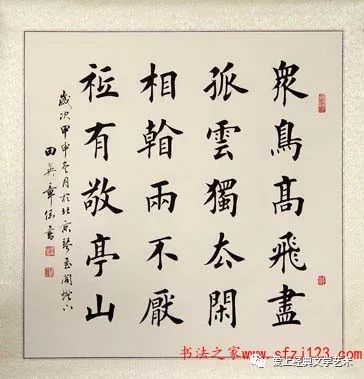 眾鳥高飛盡
孤雲獨厺閑
相看兩不厭
祇有敬亭山
歲次甲申冬月於北京
田英章
书法之家www.sfzj123.com
爱上经典文学艺术